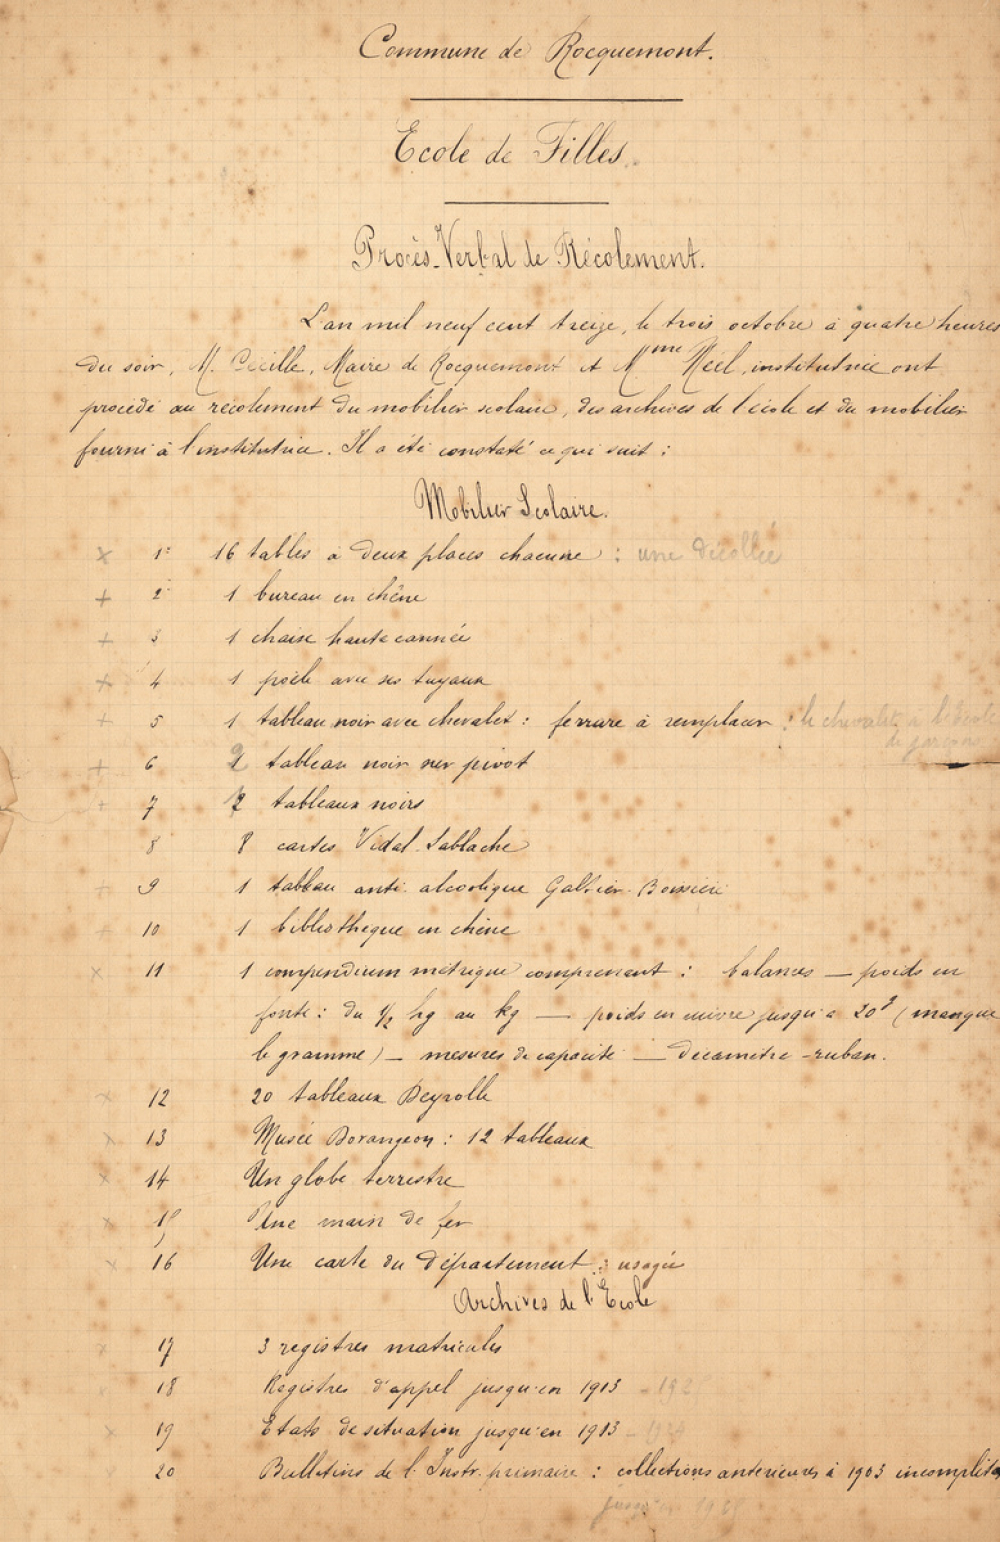 Commune de Rocquemont.
Ecole de Filles.
Procès-Verbal de Récolement.
L'an mil neuf cent treize, le trois octobre à quatre heures
du soir, M. Cécille, Maire de Rocquemont et Mme Néel, institutrice ont
procédé au récolement du mobilier scolaire, des archives de l'école et du mobilier
fourni à l'institutrice. Il a été constaté ce qui suit :
Mobilier Scolaire.
× 1° 16 tables à deux places chacune : une décollée
+ 2° 1 bureau en chêne
+ 3 1 chaise haute cannée
+ 4 1 poêle avec ses tuyaux
+ 5 1 tableau noir avec chevalet : ferrure à remplacer : le chevalet à l'école
de garçons
+ 6 2 tableau noir sur pivot
+ 7 2 tableaux noirs
8 8 cartes Vidal-Lablache
+ 9 1 tableau anti-alcoolique Galtier-Boissière
+ 10 1 bibliothèque en chêne
× 11 1 compendium métrique comprenant : balances — poids en
fonte : du ½ hg au kg — poids en cuivre jusqu'à 20g (manque
le gramme) — mesures de capacité — décamètre-ruban.
× 12 20 tableaux Deyrolle
× 13 Musée Dorangeon : 12 tableaux
× 14 Un globe terrestre
× 15 Une main de fer
× 16 Une carte du département : usagée
Archives de l'Ecole
× 17 3 registres matricules
× 18 Registres d'appel jusqu'en 1913
× 19 Etats de situation jusqu'en 1913
20 Bulletins de l'Instr. primaire : collections antérieures à 1903 incomplètes
jusqu'en